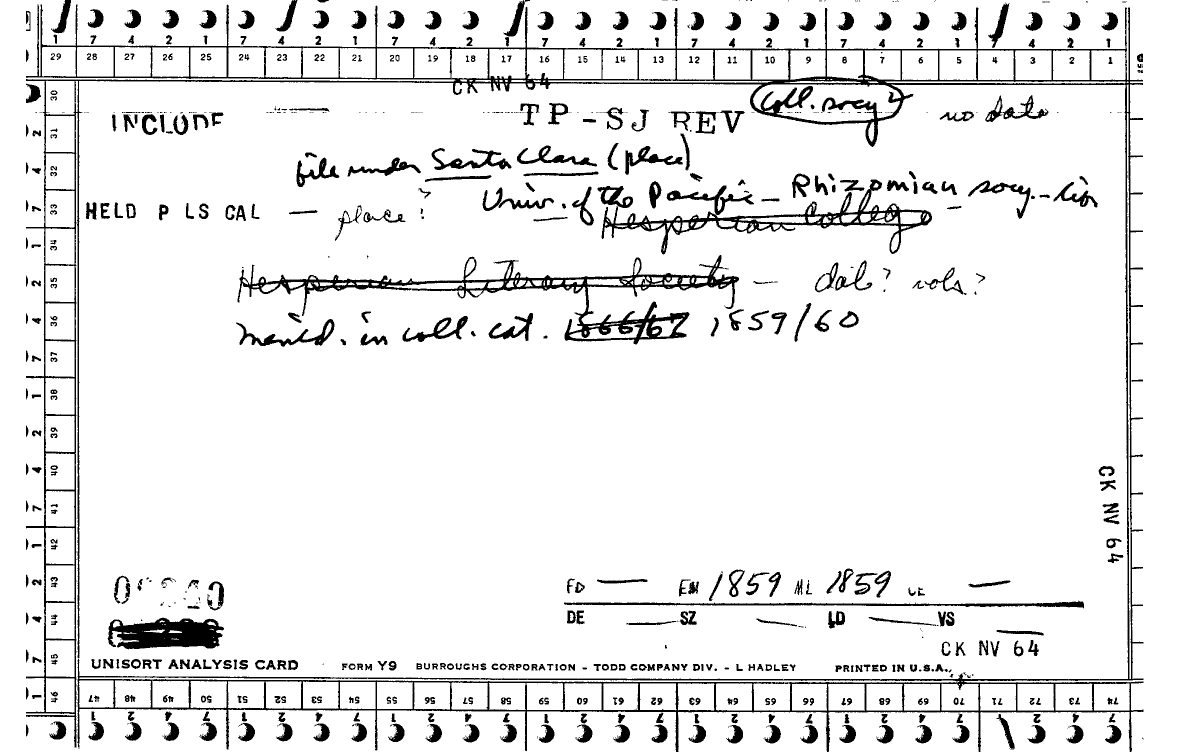 1 7 4 2 1 7 4 2 1 7 4 2 1 7 4 2 1 7 4 2 1 7 4 2 1 7 4 2 1
29 28 27 26 25 24 23 22 21 20 19 18 17 16 15 14 13 12 11 10 9 8 7 6 5 4 3 2 1
CK NV 64
INCLUDE TP-SJ REV coll. socy no data
file under Santa Clara (place)
Univ. of the Pacific - Rhizomian socy.
HELD P LS CAL — place? Hesperian College
Hesperian Literary Society — dat? vols?
Ment'd. in coll. cat. 1866/67 1859/60
30
2 31
4 32
7 33
1 34
2 35
4 36
7 37
1 38
2 39
4 40
7 41
1 42
2 43
4 44
7 45
1 46
CK NV 64
FD — EM 1859 ML 1859 CE —
DE — SZ — LD — VS —
CK NV 64
UNISORT ANALYSIS CARD FORM Y9 BURROUGHS CORPORATION - TODD COMPANY DIV. - L HADLEY PRINTED IN U.S.A.
47 48 49 50 51 52 53 54 55 56 57 58 59 60 61 62 63 64 65 66 67 68 69 70 71 72 73 74
1 2 4 7 1 2 4 7 1 2 4 7 1 2 4 7 1 2 4 7 1 2 4 7 1 2 4 7